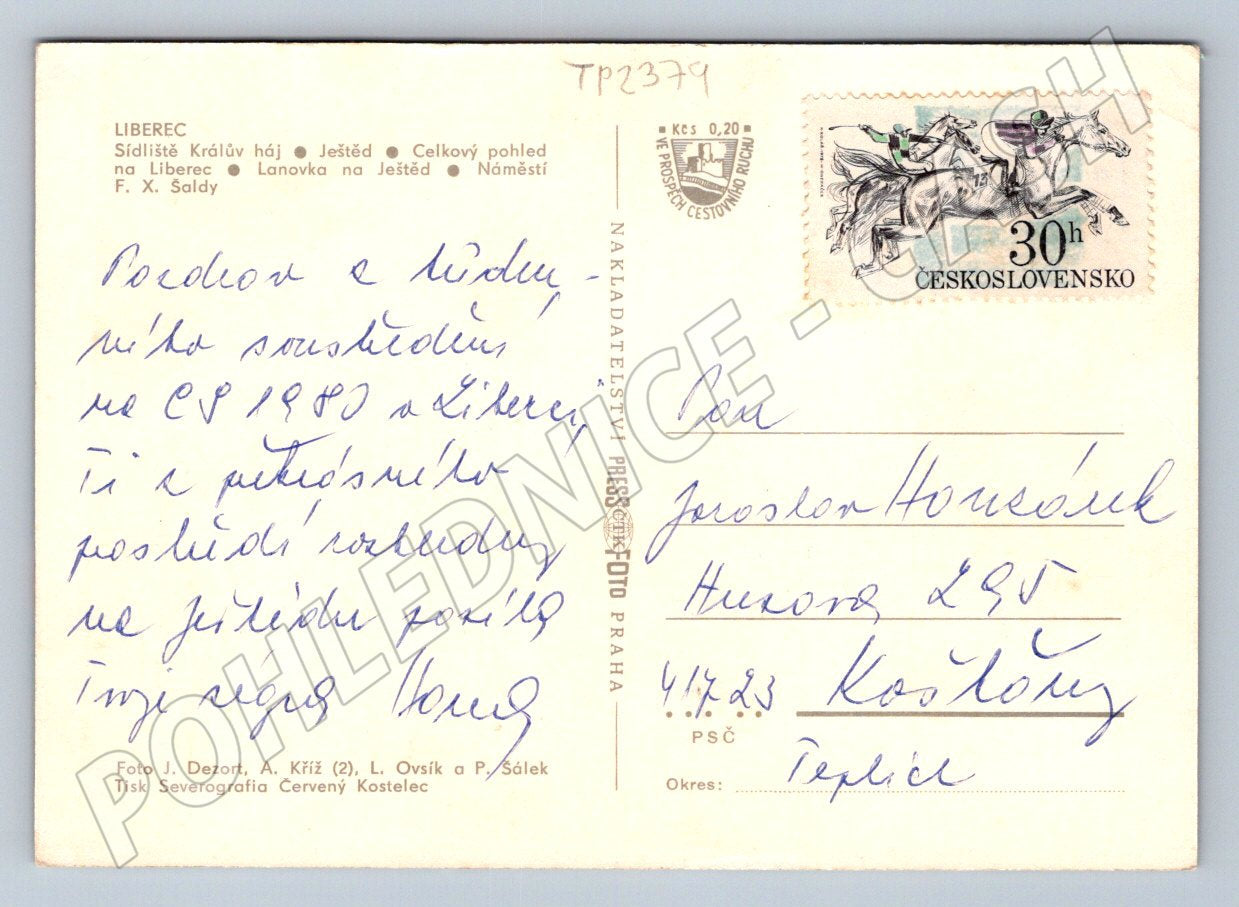 TP2379
LIBEREC
Sídliště Králův háj ● Ještěd ● Celkový pohled
na Liberec ● Lanovka na Ještěd ● Náměstí
F. X. Šaldy
Kčs 0,20
VE PROSPĚCH CESTOVNÍHO RUCHU
30h
ČESKOSLOVENSKO
Pozdrav z týden-
ního soustředění
na ČS 1980 v Liberci
Ti z překrásného
prostředí rozhledny
na Ještědu posílá
Tvoje ségra Hana
Foto J. Dezort, A. Kříž (2), L. Ovsík a P. Šálek
Tisk Severografia Červený Kostelec
NAKLADATELSTVÍ PRESSFOTO PRAHA
ČTK
Pan
Jaroslav Honzárek
Husova 295
417 23 Košťany
PSČ
Okres: Teplice
POHLEDNICE - CASH